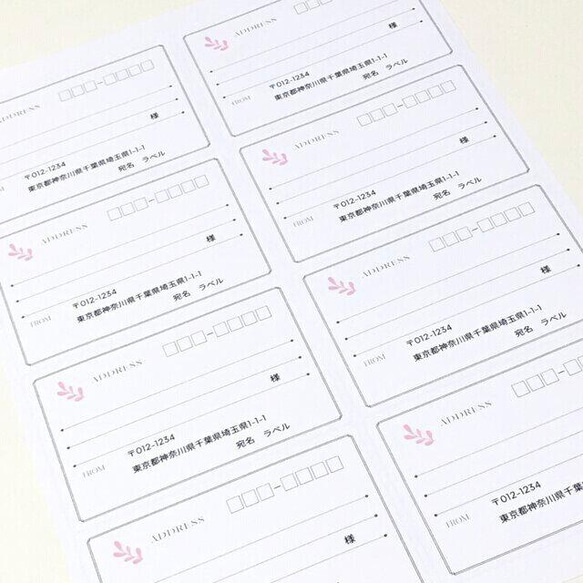 ADDRESS
様
FROM
〒012-1234
東京都神奈川県千葉県埼玉県1-1-1
宛名 ラベル
ADDRESS
様
FROM
〒012-1234
東京都神奈川県千葉県埼玉県1-1-1
宛名 ラベル
ADDRESS
様
FROM
〒012-1234
東京都神奈川県千葉県埼玉県1-1-1
宛名 ラベル
ADDRESS
様
ADDRESS
様
FROM
〒012-1234
東京都神奈川県千葉県埼玉県1-1-1
宛名 ラベル
ADDRESS
様
FROM
〒012-1234
東京都神奈川県千葉県埼玉県1-1-1
宛名 ラベル
ADDRESS
様
FROM
〒012-1234
東京都神奈川県千葉県埼玉県1-1-1
宛名 ラベル
ADDRESS
FROM
〒012-1234
東京都神奈川県千葉